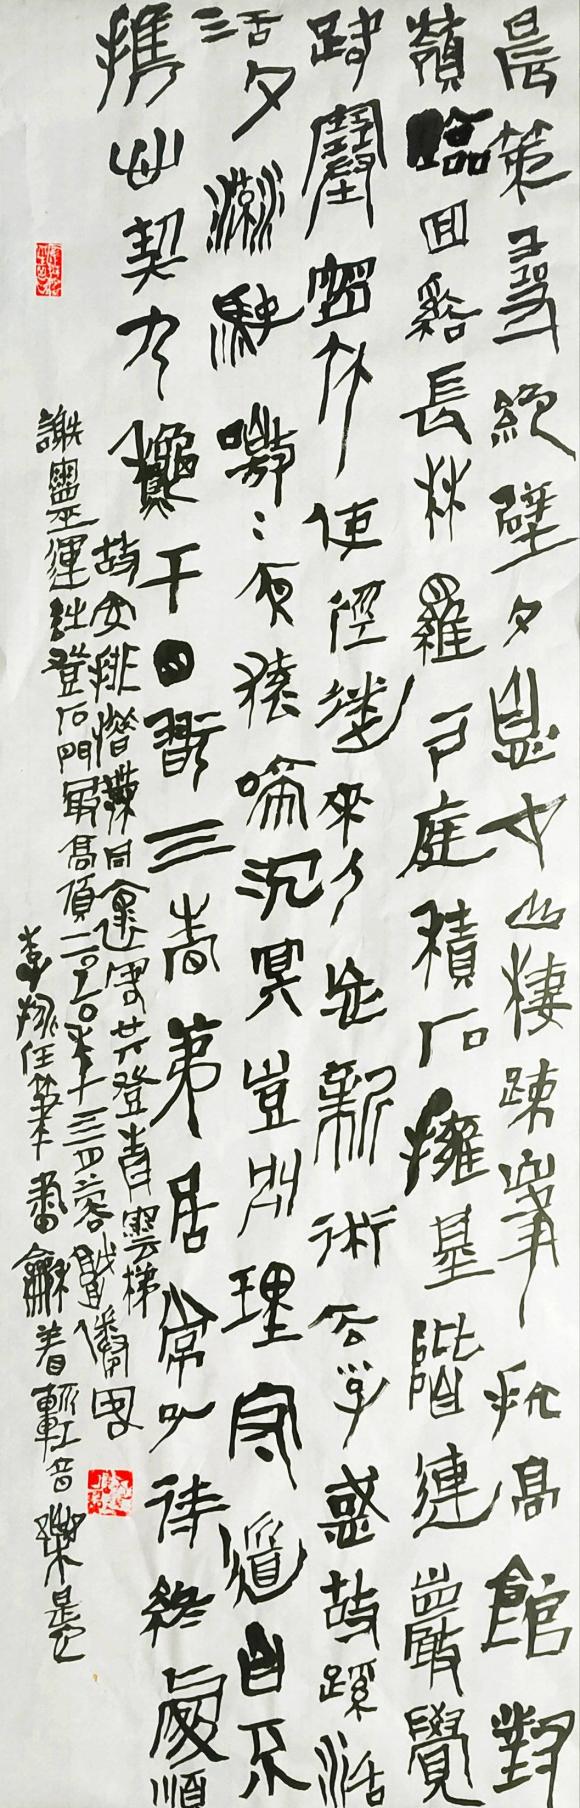 晨策尋絕壁夕息在山棲疎峯抗高館對
嶺臨回谿長林羅戶庭積石擁基階連巖覺
路塞密竹使徑迷來人忘新術去子惑故蹊活
活夕流駛噭〻夜猿啼沉冥豈別理守道自不
攜心契九龝干目翫三春荑居常以待終處順
故安排惜無同懷客共登青雲梯
謝靈運詩登石門最高頂二〇二〇年十
任筆書龢着輕音樂是也